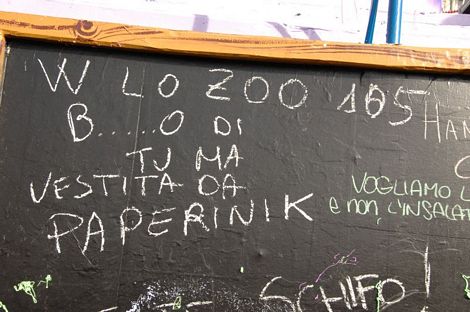 W LO ZOO 105
HAI
B.....O DI
TU MA
VESTITA DA
VOGLIAMO L
PAPERINIK
e non L'INSALAT
SCHIFO!